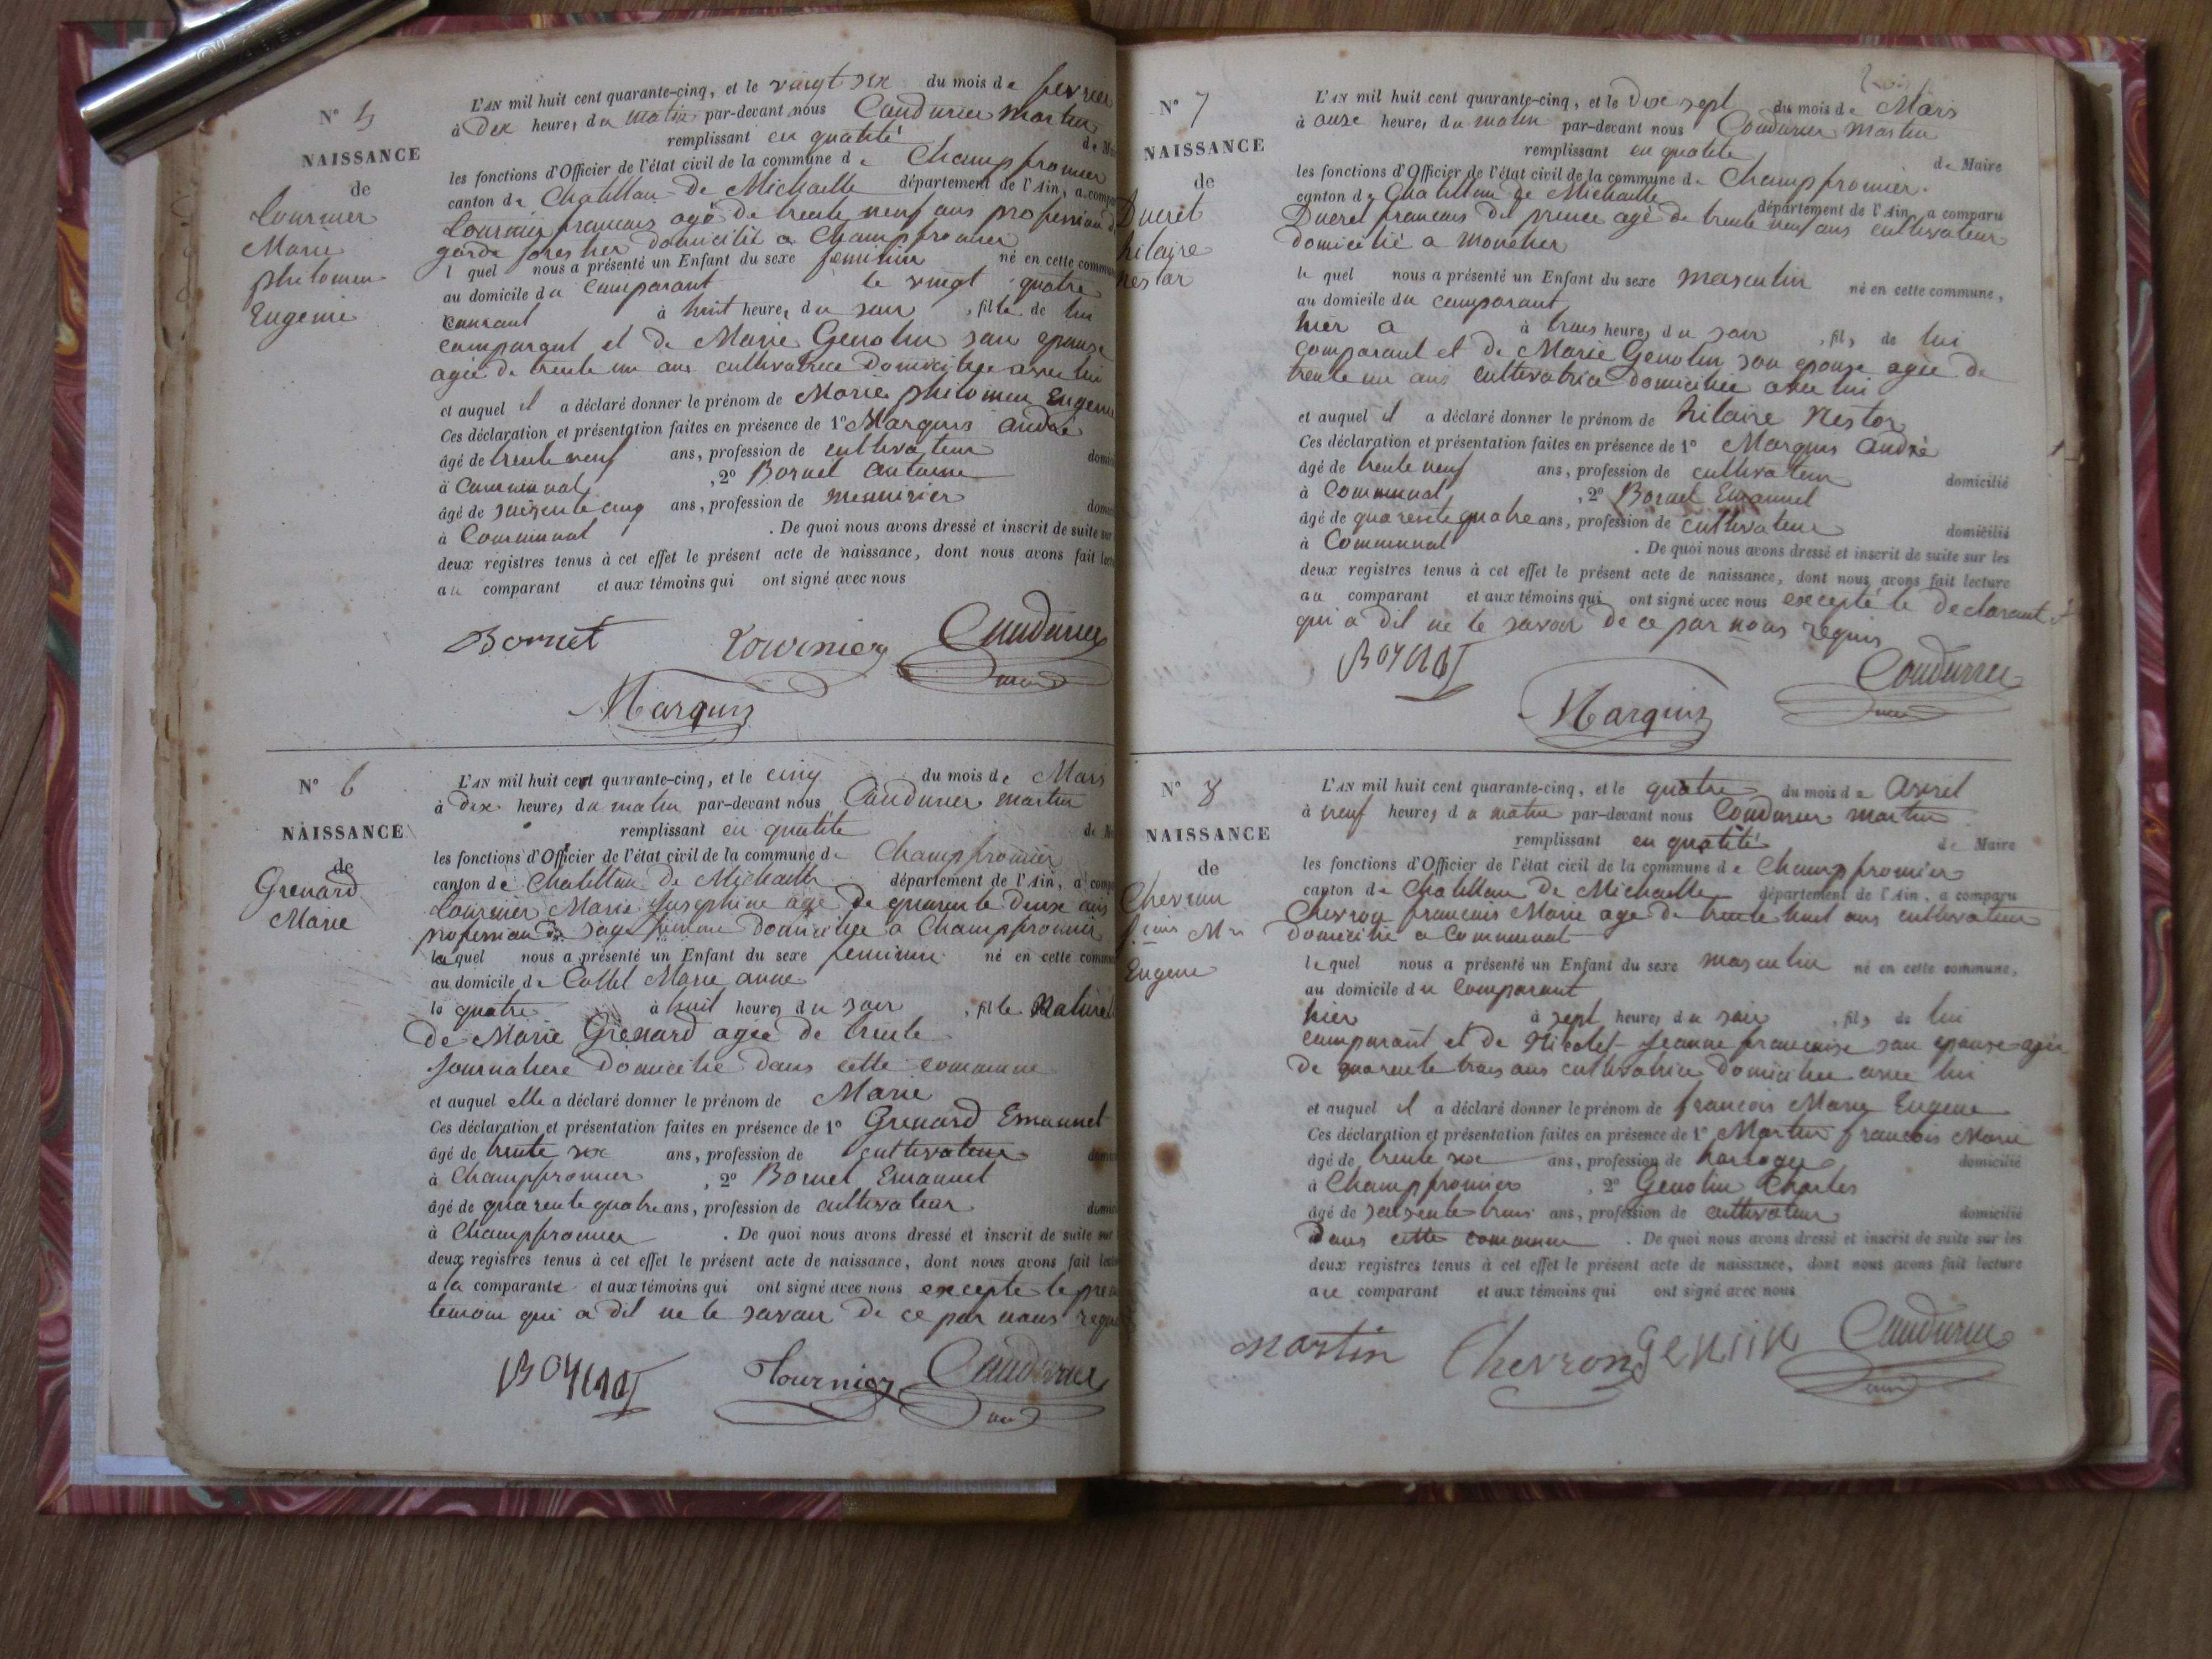 N° 5
NAISSANCE
de
Tournier
Marie
philomen
Eugenie
L'AN mil huit cent quarante-cinq, et le vingt six du mois de fevrier
à Dix heures du matin par-devant nous Coudurier Martin
remplissant en qualité de M
les fonctions d'Officier de l'état civil de la commune de Champfromier
canton de Chatillon de Michaille département de l'Ain, a comp
Tournier francois agé de trente neuf ans profession d
garde forestier domicilié a Champfromier
l quel nous a présenté un Enfant du sexe feminin né en cette commun
au domicile du comparant le vingt quatre
courant à huit heures du soir , fille de lui
comparant et de Marie Genolin son epouse
agée de trente un ans cultivatrice Domiciliée avec lui
et auquel il a déclaré donner le prénom de Marie philomen Eugenie
Ces déclaration et présentation faites en présence de 1° Marquis andré
âgé de trente neuf ans, profession de cultivateur domi
à Communal , 2° Bornet Antoine
âgé de soixente cinq ans, profession de meunirier domi
à Communal . De quoi nous avons dressé et inscrit de suite sur
deux registres tenus à cet effet le présent acte de naissance, dont nous avons fait lect
au comparant et aux témoins qui ont signé avec nous
Bornet Tournier Coudurier
maire
Marquis
N° 6
NAISSANCE
de
Grenard
Marie
L'AN mil huit cent quarante-cinq, et le cinq du mois de Mars
à dix heures du matin par-devant nous Coudurier martin
remplissant en qualité de M
les fonctions d'Officier de l'état civil de la commune de Champfromier
canton de Chatillon de Michaille département de l'Ain, a comp
Tournier Marie Josephine agé de quarente deux ans
profession de sage femme Domiciliée à Champfromier
laquel nous a présenté un Enfant du sexe feminin né en cette commun
au domicile de Collet Marie anne
le quatre à huit heures du soir , fille Naturel
de Marie Grenard agée de trente
Journaliere Domicilié dans cette commune
et auquel elle a déclaré donner le prénom de Marie
Ces déclaration et présentation faites en présence de 1° Grenard Emanuel
âgé de trente six ans, profession de cultivateur domi
à Champfromier , 2° Bornet Emanuel
âgé de quarente quatre ans, profession de cultivateur domi
à Champfromier . De quoi nous avons dressé et inscrit de suite sur
deux registres tenus à cet effet le présent acte de naissance, dont nous avons fait lect
a la comparante et aux témoins qui ont signé avec nous excepté le pre
temoin qui a dit ne le savoir de ce par nous requ
Bornet Tournier Coudurier
maire
N° 7
NAISSANCE
de
Ducret
hilaire
nestor
L'AN mil huit cent quarante-cinq, et le Dix sept du mois de Mars
à onze heures du matin par-devant nous Coudurier Martin
remplissant en qualité de Maire
les fonctions d'Officier de l'état civil de la commune de Champfromier
canton de Chatillon de Michaille département de l'Ain, a comparu
Ducret francois du prince agé de trente neuf ans cultivateur
domicilié a Monetier
le quel nous a présenté un Enfant du sexe masculin né en cette commune,
au domicile du comparant
hier a à trois heures du soir , fils de lui
comparant et de Marie Genolin son epouse agée de
trente un ans cultivatrice domiciliée avec lui
et auquel il a déclaré donner le prénom de hilaire Nestor
Ces déclaration et présentation faites en présence de 1° Marquis André
âgé de trente neuf ans, profession de cultivateur domicilié
à Communal , 2° Bornet Emanuel
âgé de quarente quatre ans, profession de cultivateur domicilié
à Communal . De quoi nous avons dressé et inscrit de suite sur les
deux registres tenus à cet effet le présent acte de naissance, dont nous avons fait lecture
au comparant et aux témoins qui ont signé avec nous excepté le declarant
qui a dit ne le savoir de ce par nous requis
Bornet Coudurier
maire
Marquis
N° 8
NAISSANCE
de
Chevron
f.cois M.ie
Eugene
L'AN mil huit cent quarante-cinq, et le quatre du mois de Avril
à neuf heures du matin par-devant nous Coudurier martin
remplissant en qualité de Maire
les fonctions d'Officier de l'état civil de la commune de Champfromier
canton de Chatillon de Michaille département de l'Ain, a comparu
Chevron francois Marie agé de trente huit ans cultivateur
domicilié a Communal
le quel nous a présenté un Enfant du sexe masculin né en cette commune,
au domicile du Comparant
hier à sept heures du soir , fils de lui
comparant et de Nicolet Jeanne francoise son epouse agée
de quarente trois ans cultivatrice Domiciliée avec lui
et auquel il a déclaré donner le prénom de francois Marie Eugene
Ces déclaration et présentation faites en présence de 1° Martin francois Marie
âgé de trente six ans, profession de horloger domicilié
à Champfromier , 2° Genolin Charles
âgé de soixente trois ans, profession de cultivateur domicilié
Dans cette commune . De quoi nous avons dressé et inscrit de suite sur les
deux registres tenus à cet effet le présent acte de naissance, dont nous avons fait lecture
au comparant et aux témoins qui ont signé avec nous
martin Chevron Coudurier
maire